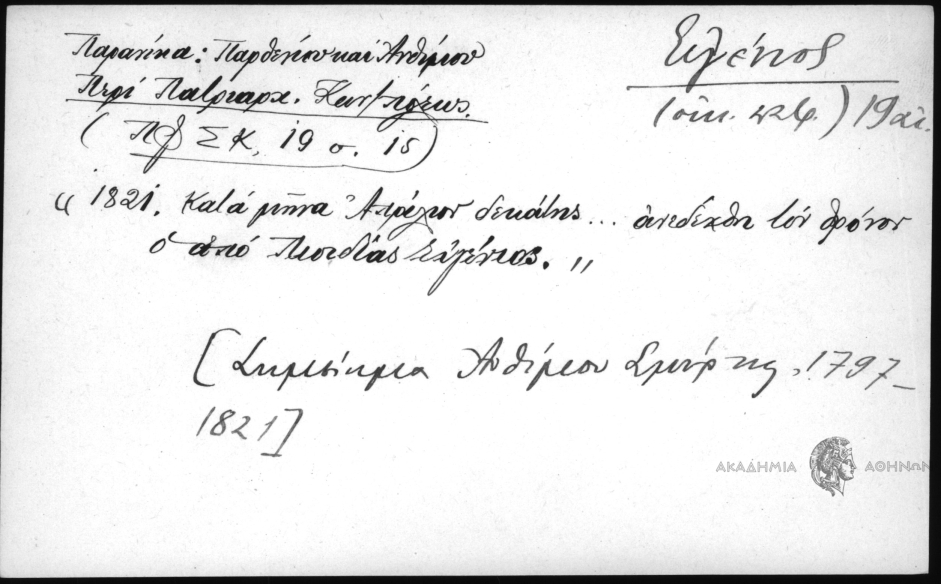 Παρανίκα: Παρθενίου καὶ Ἀνθίμου
Περὶ Πατριαρχ. Κων/πόλεως.
(ΠΦΣΚ, 19 σ. 15)
Εὐγένιος
(οἰκ. πατρ.) 19 αἰ.
" 1821. Κατὰ μῆνα Ἀπρίλιον δεκάτης... ἀνεδέχθη τὸν θρόνον
ὁ ἀπὸ Πισιδίας Εὐγένιος. "
[Σημείωμα Ἀνθίμου Σμύρνης, 1797-
1821]
ΑΚΑΔΗΜΙΑ ΑΘΗΝΩΝ